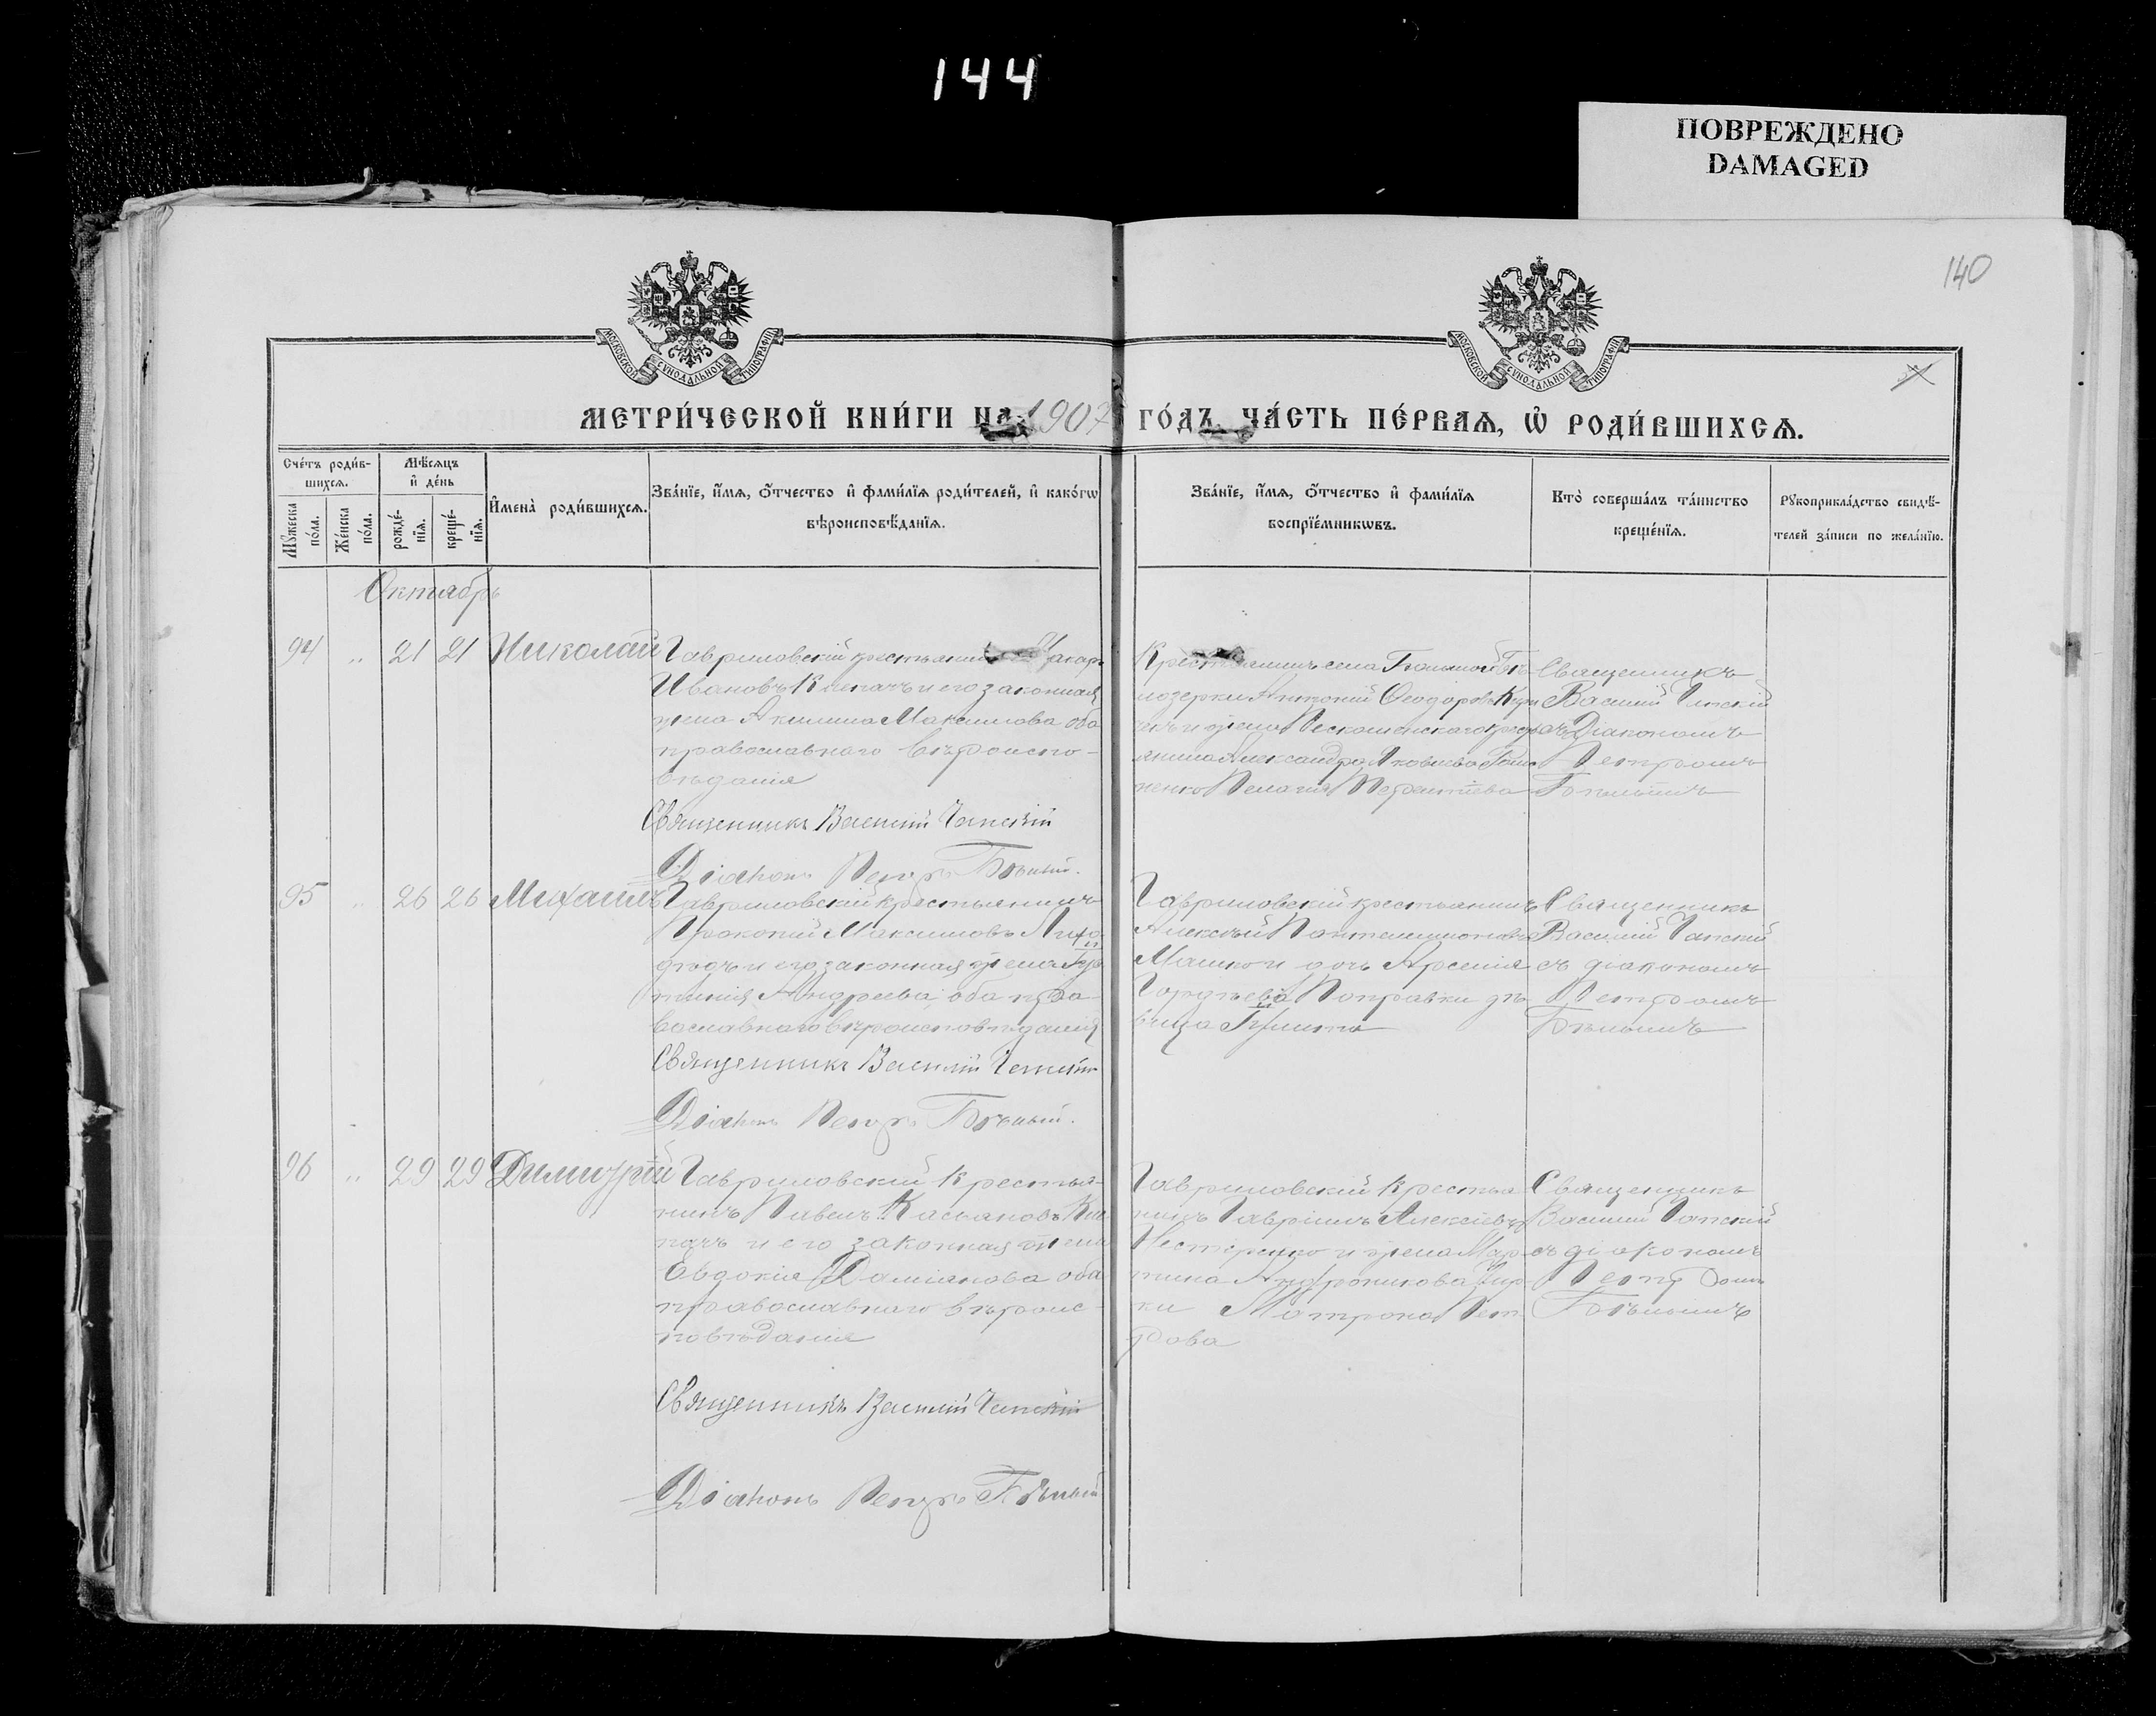 144
ПОВРЕЖДЕНО
DAMAGED
140
МОСКОВСКОЙ СѴНОДАЛЬНОЙ ТИПОГРАФІИ
МОСКОВСКОЙ СѴНОДАЛЬНОЙ ТИПОГРАФІИ
МЕТРИ́ЧЕСКОЙ КНИ́ГИ НА 1907 ГО́ДЪ, ЧА́СТЬ ПЕ́РВАѦ, Ѡ҆ РОДИ́ВШИХСѦ.
Сче́тъ роди́в-
шихсѧ.
Мꙋжеска
по́ла.
Же́нска
по́ла.
Мѣ́сѧцъ
и҆ де́нь
рожде́-
нїѧ.
креще́-
нїѧ.
И҆мена̀ роди́вшихсѧ.
Зва́нїе, и҆́мѧ, ѻ҆́тчество и҆ фами́лїѧ роди́телей, и҆ како́гѡ
вѣроисповѣ́данїѧ.
Зва́нїе, и҆́мѧ, ѻ҆́тчество и҆ фами́лїѧ
воспрїе́мникѡвъ.
Кто̀ соверша́лъ та́инство
креще́нїѧ.
Рꙋкоприкла́дство свидѣ́-
телей за́писи по жела́нїю.
Октябрь
94 " 21 21 Николай
Гавриловскій крестьянинъ Макаръ
Ивановъ Клепачъ и его законная
жена Акилина Максимова оба
православнаго вѣроиспо-
вѣданія
Священникъ Василій Чапскій
Діаконъ Петръ Бѣлый.
Крестьянинъ села Большой Бѣ-
лозерки Антоній Ѳеодоровъ
и жена
янина Александра Яковлева
ненко Пелагія Терентіева
Священникъ
Василій Чапскій
съ Діакономъ
Петромъ
Бѣлымъ
95 " 26 26 Михаилъ
Гавриловскій крестьянинъ
Прокопій Максимовъ
и его законная жена
Андреева оба пра-
вославнаго вѣроисповѣданія
Священникъ Василій Чапскій
Діаконъ Петръ Бѣлый.
Гавриловскій крестьянинъ
Алексѣй Пантелеимоновъ
Машко и дочь Арсенія
Гордѣева Поправки дѣ-
вица
Священникъ
Василій Чапскій
съ діакономъ
Петромъ
Бѣлымъ
96 " 29 29 Димитрій
Гавриловскій крестья-
нинъ Павелъ Касьяновъ Кле-
пачъ и его законная жена
Евдокія Даміанова оба
православнаго вѣроис-
повѣданія
Священникъ Василій Чапскій
Діаконъ Петръ Бѣлый
Гавриловскій крестья-
нинъ Гавріилъ Алексіевъ
Нестеренко и жена Мар-
тина Андроникова
ки Матрона Пет-
рова
Священникъ
Василій Чапскій
съ діакономъ
Петромъ
Бѣлымъ